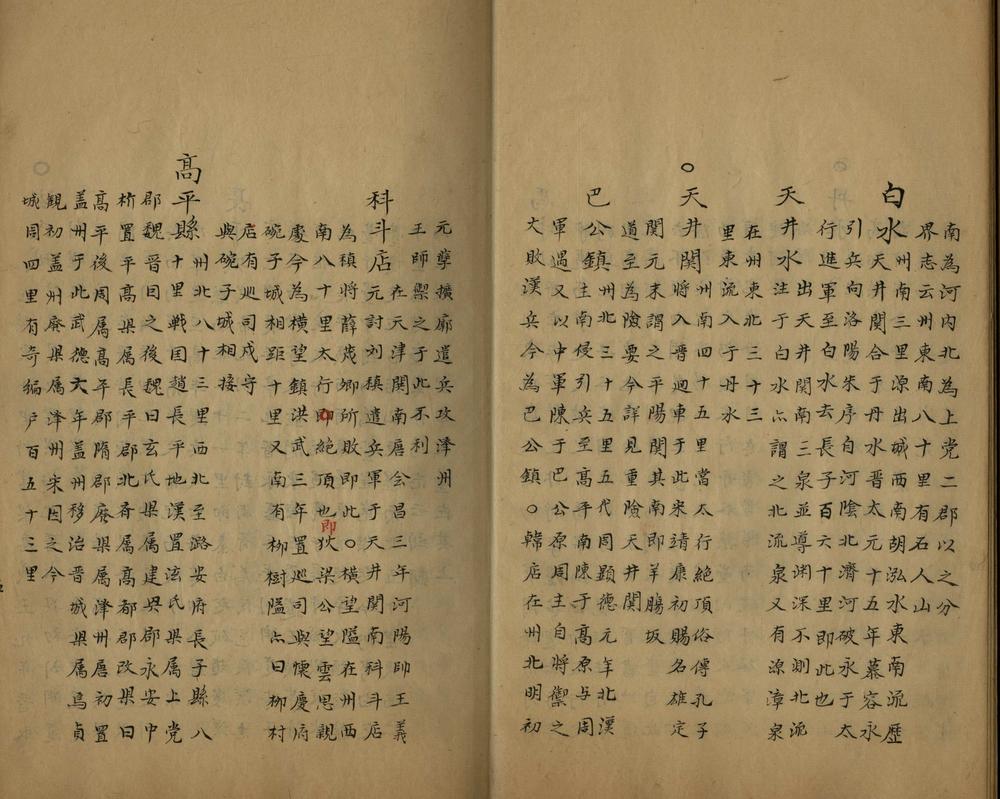 南為河内北為上党二郡以之分
界志云州東南八十里有石人山
白水州南三里源出城西南胡泓水東南流歷
天井関合于丹水晋太元十五年慕容永
引兵向洛陽朱序自河陰北濟河破永于太
行進軍至白水去長子百六十里即此也
天井水出天井関南三泉並導渊深不測北流
注于白水亦謂之北流泉又有源漳泉
在州東北三十三
里東流入于丹水
○天井関州南四十五里當太行絶頂俗傳孔子
將入晋廻車于此宋靖康初賜名雄定
関元末謂之平陽関其南即羊膓坂
道至為險要今詳見重險天井関
巴公鎮州北三十五里五代周顕德元年北漢
主南侵引兵至高平南陳于高原与周
軍遇又以中軍陳于巴公原周主自將禦之
大敗漢兵今為巴公鎮○韓店在州北明初
元孽擴廓遣兵攻澤州
王師禦之于此不利
科斗店在天津関南唐会昌三年河陽帥王義
元討刘稹遣兵軍于天井関南科斗店
為稹將薛茂卿所敗即此○横望隘在州西
南八十里太行即絶頂也即狄梁公望雲思親
處今為横望鎮洪武三年置巡司與懷慶府
碗子城相距十里又南有柳樹隘亦曰柳村
店有巡司戍守
與碗子城相接
高平縣州北八十三里西北至潞安府長子縣八
十里戦囯趙長平地漢置泫氏縣属上党
郡魏晋因之後魏曰玄氏縣属建興郡永安中
析置平高縣属長平郡北斉属高都郡改縣曰
高平後周属高平郡隋郡廢縣属澤州唐初置
盖州于此武德六年盖州移治晋城縣属焉貞
觀初盖州廢縣属澤州宋因之今
城周四里有奇編户百五十三里